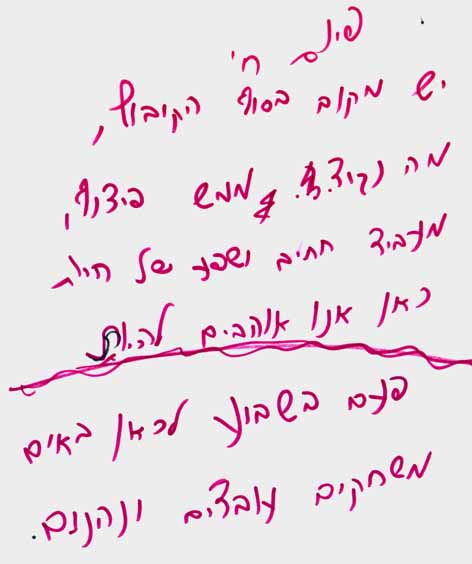 פינת חי
יש מקום בסוף הקיבוץ,
מה נגיד.. ממש פיצוץ,
מעביד חביב ושפע של חיות
כאן אנו אוהבים להיות
פעם בשבוע לכאן באים
משחקים עובדים ונהנים.